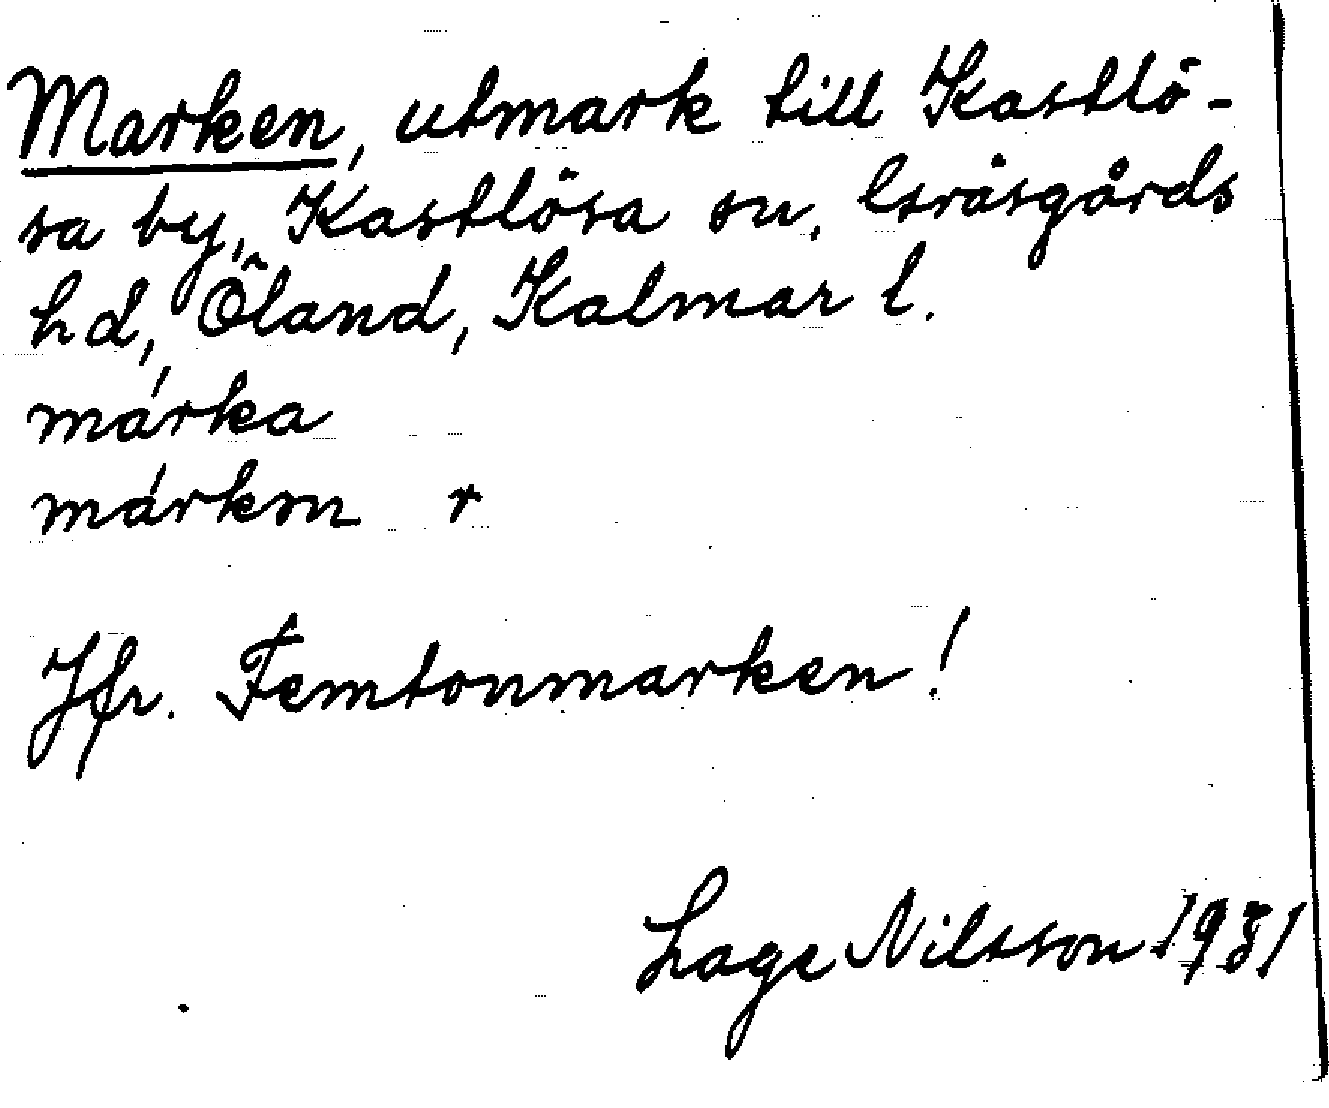 Marken, utmark till Kastlö-
sa by, Kastlösa sn. Gräsgårds
hd, Öland, Kalmar l.
márka
márkɘn r
Jfr. Femtonmarken!
Lage Nilsson 1931